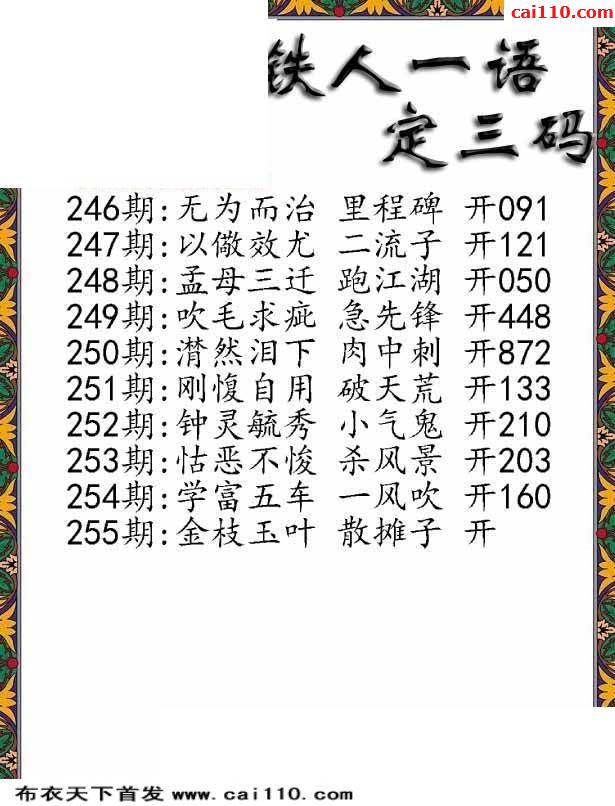 cai110.com
铁人一语
定三码
246期:无为而治 里程碑 开091
247期:以儆效尤 二流子 开121
248期:孟母三迁 跑江湖 开050
249期:吹毛求疵 急先锋 开448
250期:潸然泪下 肉中刺 开872
251期:刚愎自用 破天荒 开133
252期:钟灵毓秀 小气鬼 开210
253期:怙恶不悛 杀风景 开203
254期:学富五车 一风吹 开160
255期:金枝玉叶 散摊子 开
布衣天下首发 www.cai110.com